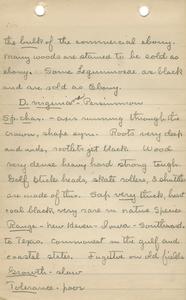 the bulk of the commercial ebony.
Many woods are stained to be sold as
ebony. Some Leguminoseae are black
and are sold as Ebony.
D. virginiana - Persimmon
Sp. char. - axis running through the
crown, shape sym. Roots very deep
and wide, rootlets jet black. Wood
very dense heavy hard strong tough.
Golf Stick heads, skate rollers, & shuttles
are made of this. Sap very thick, heart
coal black, very rare in native Species
Range - New Haven - Iowa - Southward
to Texas, commonest in the gulf and
coastal states. Fugitive on old fields
Growth - slow
Tolerance - poor